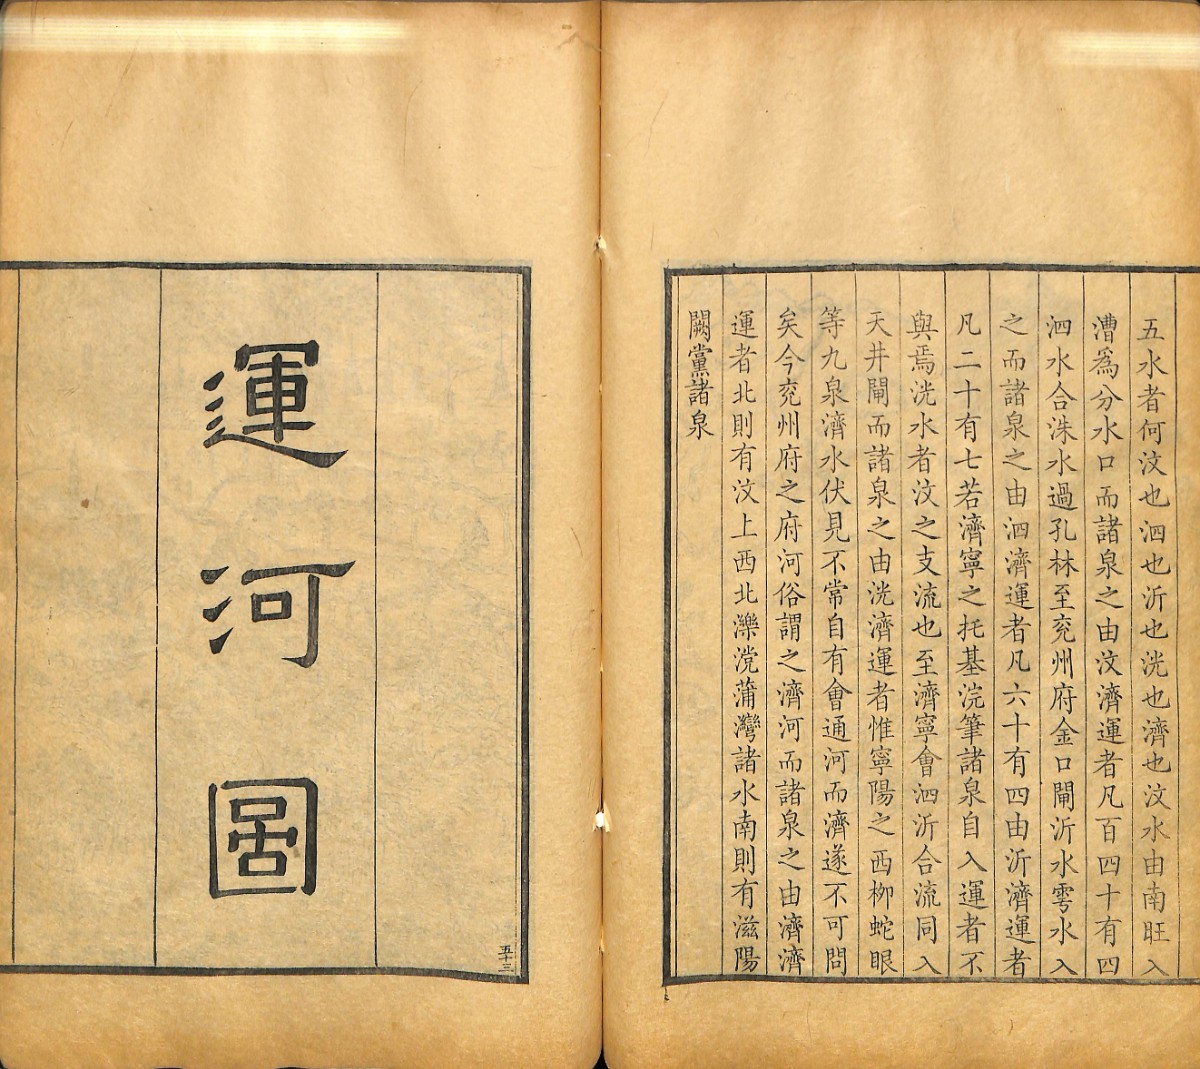 五水者何汶也泗也沂也洸也濟也汶水由南旺入
漕爲分水口而諸泉之由汶濟運者凡百四十有四
泗水合洙水過孔林至兖州府金口閘沂水雩水入
之而諸泉之由泗濟運者凡六十有四由沂濟運者
凡二十有七若濟寧之托基浣筆諸泉自入運者不
與焉洸水者汶之支流也至濟寧會泗沂合流同入
天井閘而諸泉之由洸濟運者惟寧陽之西柳蛇眼
等九泉濟水伏見不常自有會通河而濟遂不可問
矣今兖州府之府河俗謂之濟河而諸泉之由濟濟
運者北則有汶上西北濼澢蒲灣諸水南則有滋陽
闕黨諸泉
運河圖
五十三